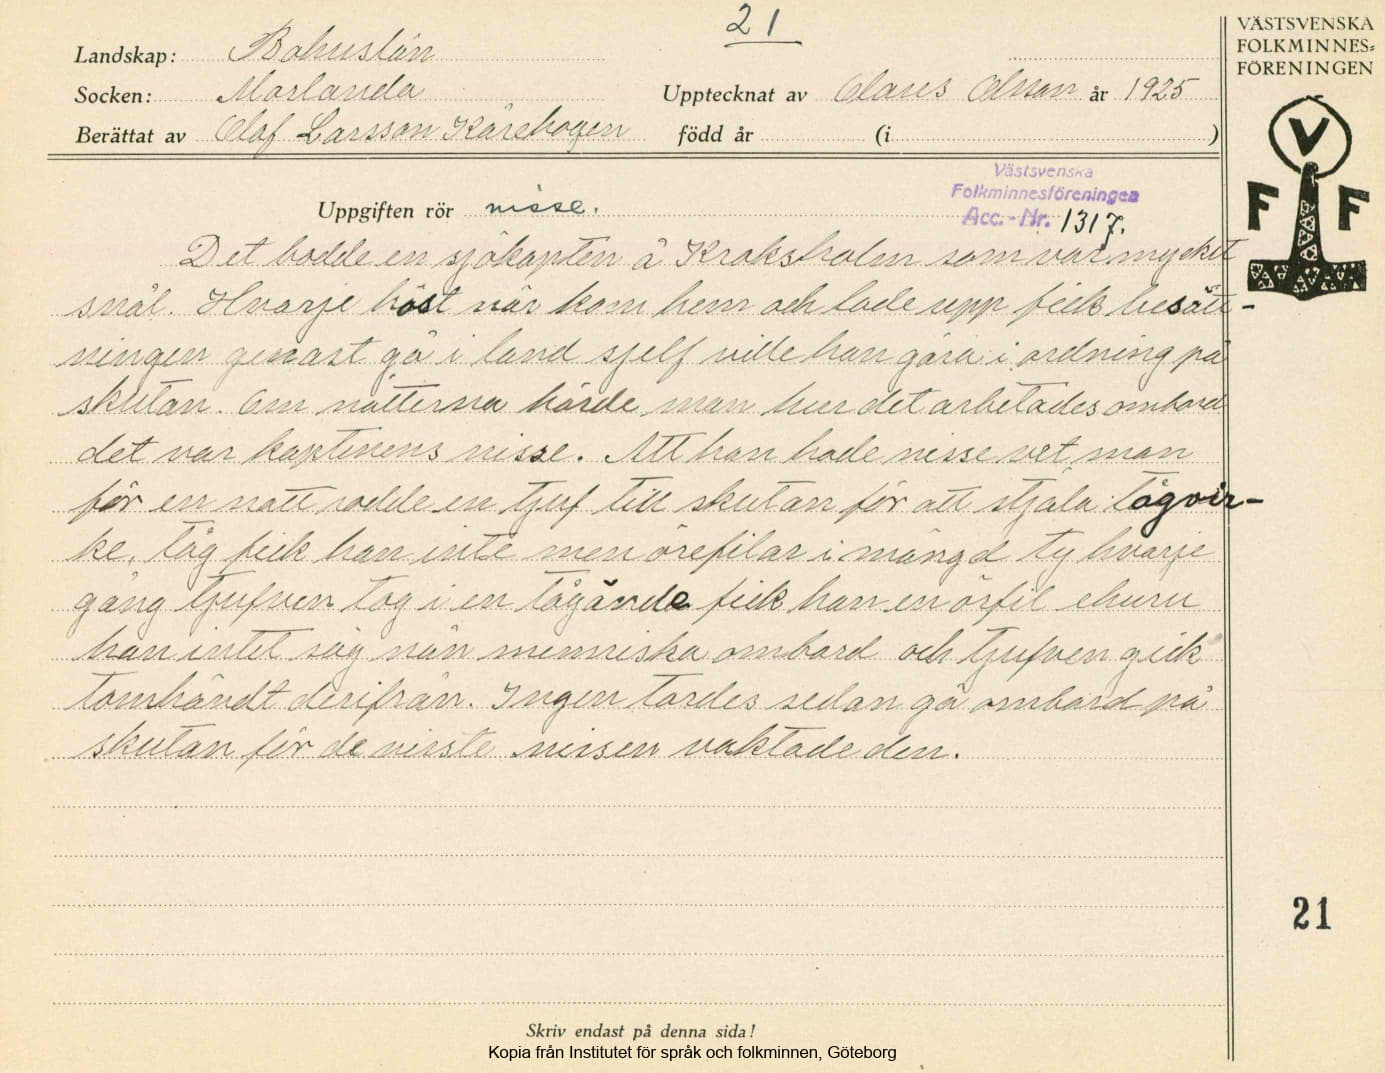 21
VÄSTSVENSKA
FOLKMINNES=
FÖRENINGEN
Landskap: Bohuslän
Socken: Morlanda
Upptecknat av Claus Olsson år 1925
Berättat av Olof Larsson Kårehogen född år (i )
V
F F
Västsvenska
Folkminnesföreningen
Acc.-Nr. 1317.
Uppgiften rör nisse.
Det bodde en sjökapten å Kroksholm som var mycket
snål. Hvarje höst när kom hem och lade upp fick besätt-
ningen genast gå i land sjelf ville han göra i ordning på
skutan. Om nätterna hörde man hur det arbetades ombord
det var kaptenens nisse. Att han hade nisse vet man
för en natt rodde en tjuf till skutan för att stjäla tågvir-
ke, tåg fick han inte men örefilar i mängd ty hvarje
gång tjufven tog i en tågände fick han en örfil ehuru
han intet såg nån menniska ombord och tjufven gick
tomhändt derifrån. Ingen tordes sedan gå ombord på
skutan för de visste nissen vaktade den.
21
Skriv endast på denna sida!
Kopia från Institutet för språk och folkminnen, Göteborg